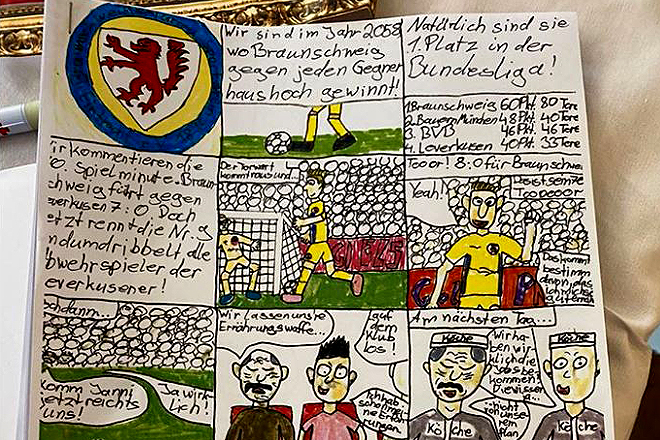 Wir sind im Jahr 2058
wo Braunschweig
gegen jeden Gegner
haushoch gewinnt!
Natürlich sind sie
1. Platz in der
Bundesliga!
1. Braunschweig 60 Pkt. 80 Tore
2. Bayern München 48 Pkt. 40 Tore
3. BVB 46 Pkt. 46 Tore
4. Leverkusen 40 Pkt. 33 Tore
ir kommentieren die
0. Spielminute. Braun
chweig führt gegen
everkusen 7:0. Doch
etzt rennt die Nr. 9
ndumdribbelt alle
bwehrspieler der
everkusener!
Der Torwart
kommt raus und...
Tooor! 8:0 für Braunschwei
Yeah!
Das ist sein 20.
Tooooor!
Das kommt
bestimm
davon, das
ich nicht so
gut ernäh
chdann...
Komm Janni
jetzt reichts
uns!
Ja wirk-
lich!
Wir lassen unsre
Ernährungswaffe...
auf
dem
Klub
los!
Ich hab
schon mei
ne Erfah
rungen
Am nächsten Tag...
Wir ha-
ben wir
klich die
Jobs be-
kommen!
Die wissen
...nicht
von unse
rem Plan
Köche
Köche
Kö che
Kö che